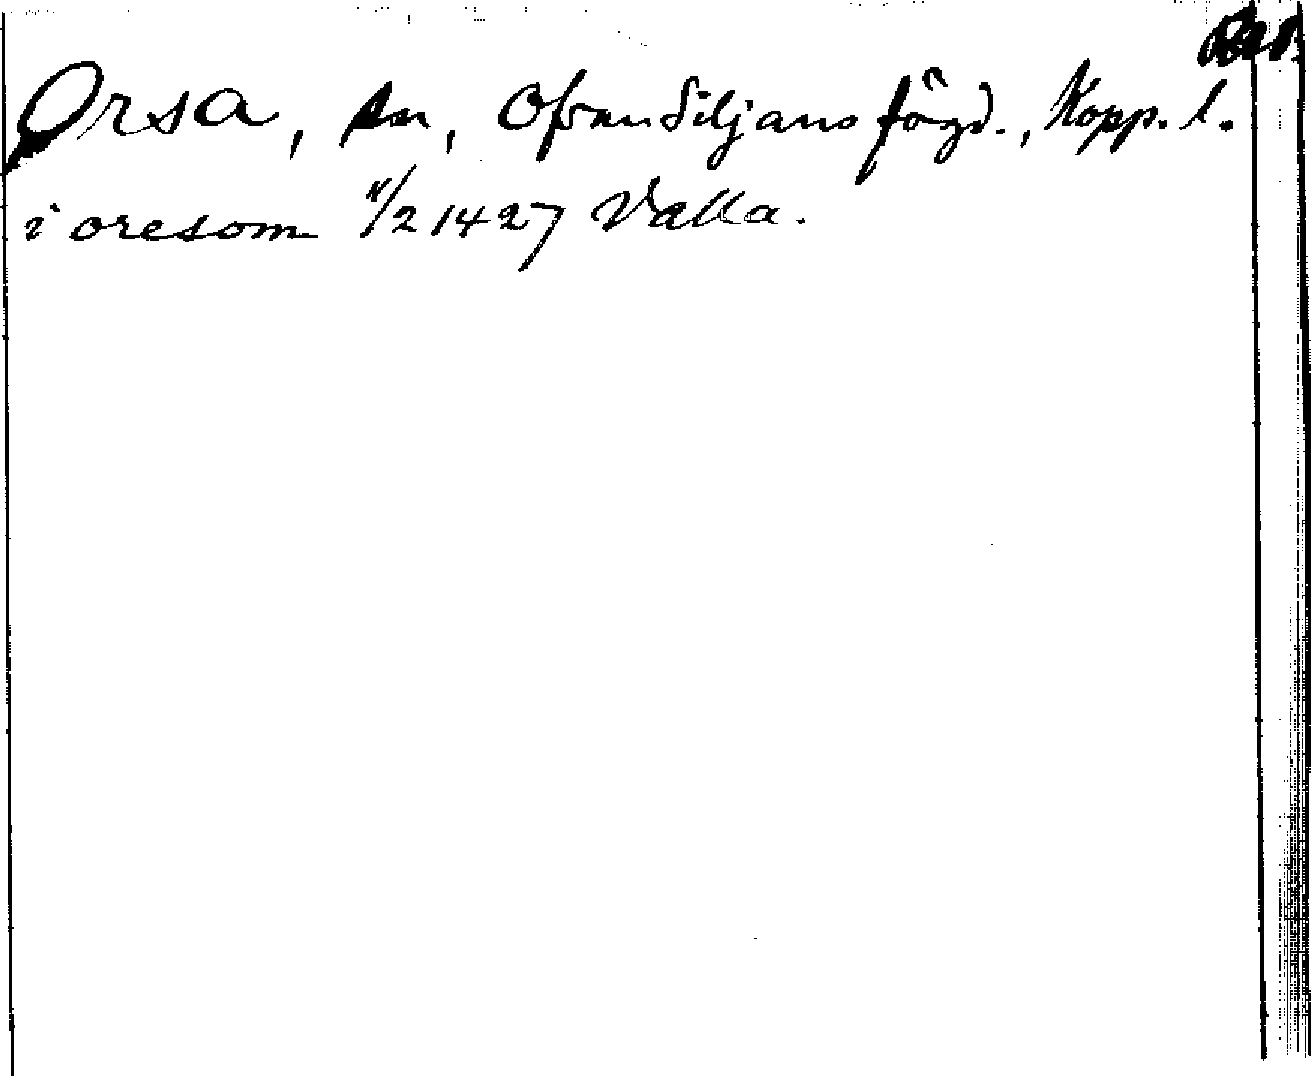 Orsa, sn, Ofvan Siljans fögd., Kopp. l.
i oresom 11/2 1427 Valla.